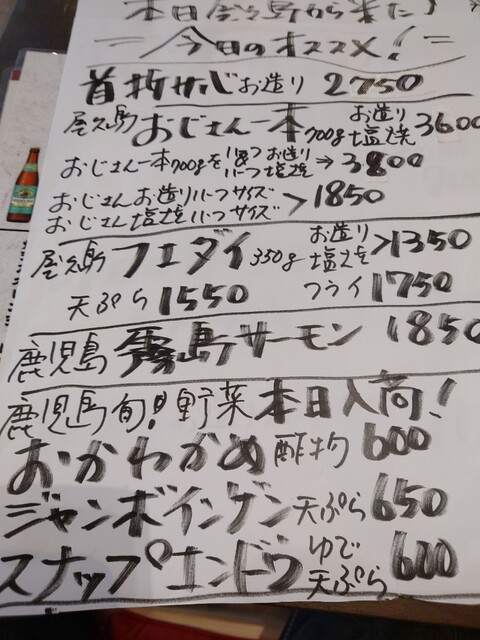 今日のオススメ!
首折サバ お造り 2750
屋久島 おじさん一本 700g お造り 塩焼 3600
おじさん一本700gを お造り 塩焼 → 3800
おじさんお造りハーフサイズ
おじさん塩焼ハーフサイズ > 1850
屋久島 フエダイ 350g お造り 塩焼 > 1350
天ぷら 1550 フライ 1750
鹿児島 霧島サーモン 1850
鹿児島旬!野菜 本日入荷!
おかわかめ 酢物 600
ジャンボインゲン 天ぷら 650
スナップエンドウ ゆで 天ぷら 600